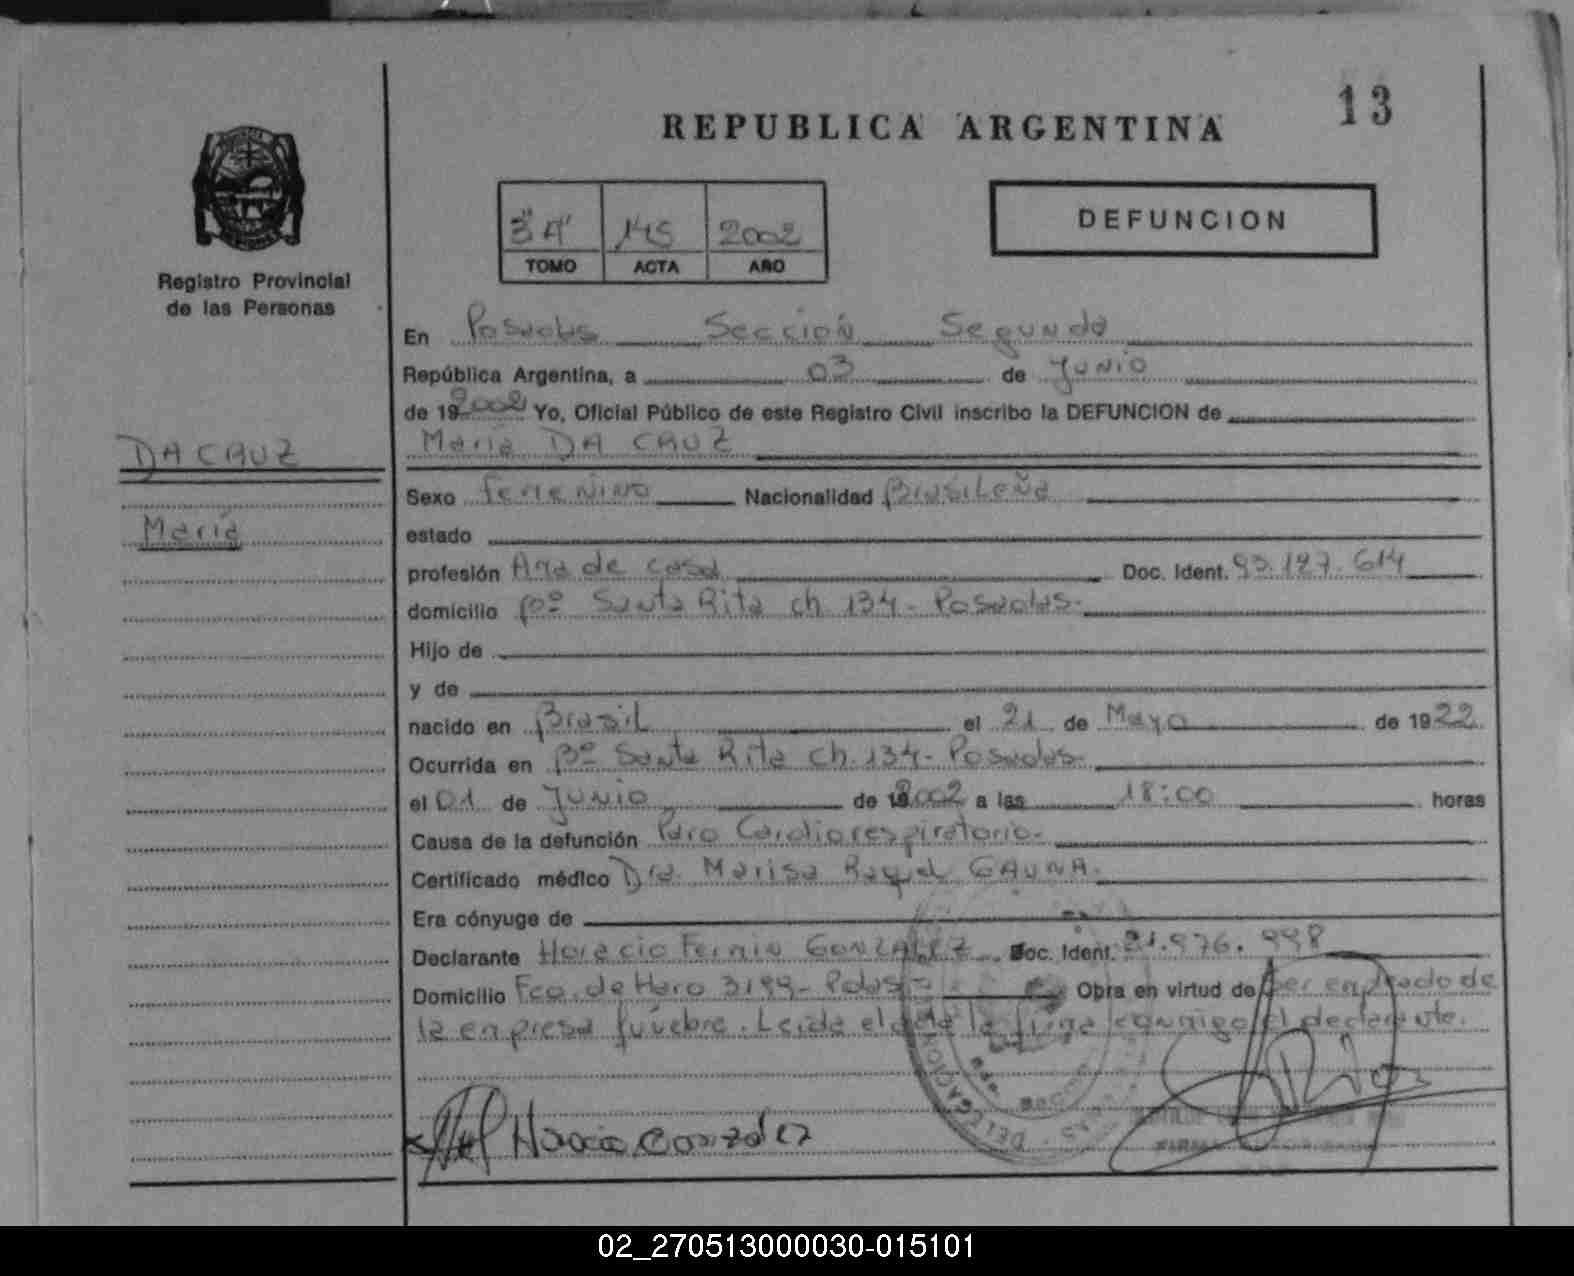 13
REPUBLICA ARGENTINA
3"A" 145 2002
TOMO ACTA AÑO
DEFUNCION
Registro Provincial
de las Personas
En Posadas Sección Segunda
República Argentina, a 03 de Junio
de 192002 Yo, Oficial Público de este Registro Civil inscribo la DEFUNCION de
María DA CRUZ
DA CRUZ
María
Sexo femenino Nacionalidad Brasileña
estado
profesión Ama de casa Doc. Ident. 93.127.614
domicilio Bº Santa Rita ch. 134 - Posadas-
Hijo de
y de
nacido en Brasil el 21 de Mayo de 1922
Ocurrida en Bº Santa Rita ch. 134 - Posadas-
el 01 de Junio de 2002 a las 18:00 horas
Causa de la defunción Paro Cardiorespiratorio.-
Certificado médico Dra. Marisa Raquel GAUNA.-
Era cónyuge de
Declarante Horacio Fermin GONZALEZ Doc. Ident. 21.976.998
Domicilio Fco. de Haro 3199- Pdas- Obra en virtud de Ser empleado de
la empresa fúnebre. Leida el acta la firma conmigo el declarante.
Horacio Gonzalez
DELEGACION
02_270513000030-015101